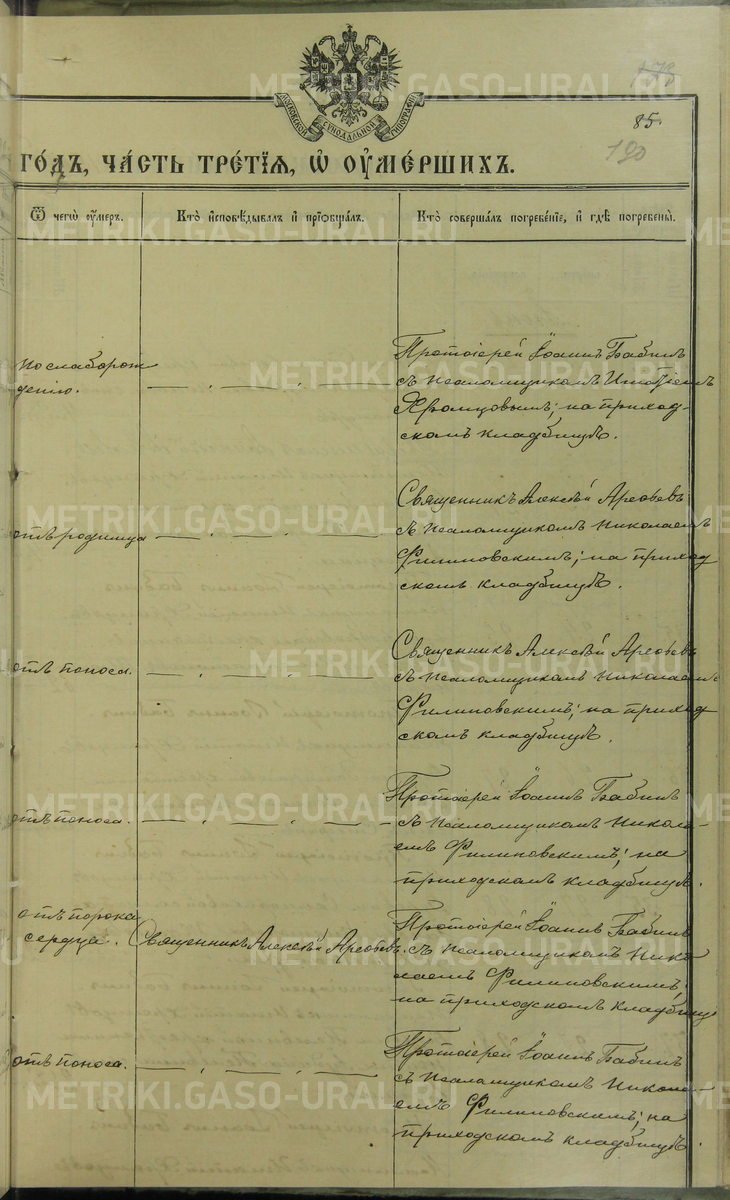 METRIKI.GASO-URAL.RU
МОСКОВСКОЙ СѴНОДАЛЬНОЙ ТИПОГРАФІИ
85.
190
ГО́ДЪ, ЧА́СТЬ ТРЕ́ТІЯ, Ѡ҆ ОУ҆МЕ́РШИХЪ.
Ѿ чегѡ̀ оу҆́меръ.
Кто̀ и҆сповѣ́дывалъ и҆ прїѡбща́лъ.
Кто̀ соверша́лъ погребе́нїе, и҆ гдѣ̀ погребены̀.
по слаборож
денію.
— „ — „ —
Протоіерей Іоаннъ Бабинъ
съ псаломщикомъ Игнатіемъ
Хромцовымъ; на приход-
скомъ кладбищѣ.
отъ родимца
— „ — „ —
Священникъ Алексѣй Арефьевъ
съ псаломщикомъ Николаемъ
Филиповскимъ; на приход
скомъ кладбищѣ.
отъ поноса.
— „ — „ —
Священникъ Алексѣй Арефьевъ
съ псаломщикомъ Николаемъ
Филиповскимъ; на приход
скомъ кладбищѣ.
отъ поноса.
— „ — „ — „ —
Протоіерей Іоаннъ Бабинъ
съ псаломщикомъ Никола-
емъ Филиповскимъ; на
приходскомъ кладбищѣ.
отъ порока
сердца.
Священникъ Алексѣй Арефьевъ.
Протоіерей Іоаннъ Бабинъ
съ псаломщикомъ Нико
лаемъ Филиповскимъ;
на приходскомъ кладбищѣ
отъ поноса.
— „ — „ — „ —
Протоіерей Іоаннъ Бабинъ
съ псаломщикомъ Никола-
емъ Филиповскимъ; на
приходскомъ кладбищѣ.